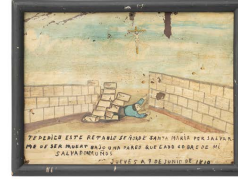 TEDEDICO ESTE RETABLO SEÑORDE SANTA MARIA PER SALVAR
ME DE SER MUERT BAJO UNA PARED QUE CAYO SOBRE DE MI
SALVADOME
JUEVES A 7 DE JUNIO DE 1810